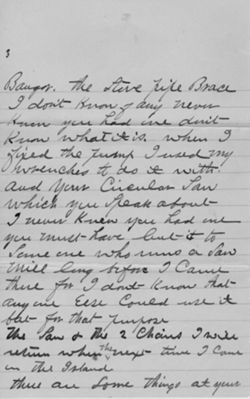 3
Bangor. the Stove pipe Brace
I don't know of any never
knew you had one don't
know what it is. when I
fixed the pump I used my
wrenches to do it with.
and your Circular Saw
which you speak about
I never knew you had one
you must have lent it to
some one who runs a Saw
Mill long before I Came
there for I don't know that
any one Else Could use it
but for that purpose
the Saw & the 2 Chairs I will
return when the next time I Come
on the Island
there are some things at your